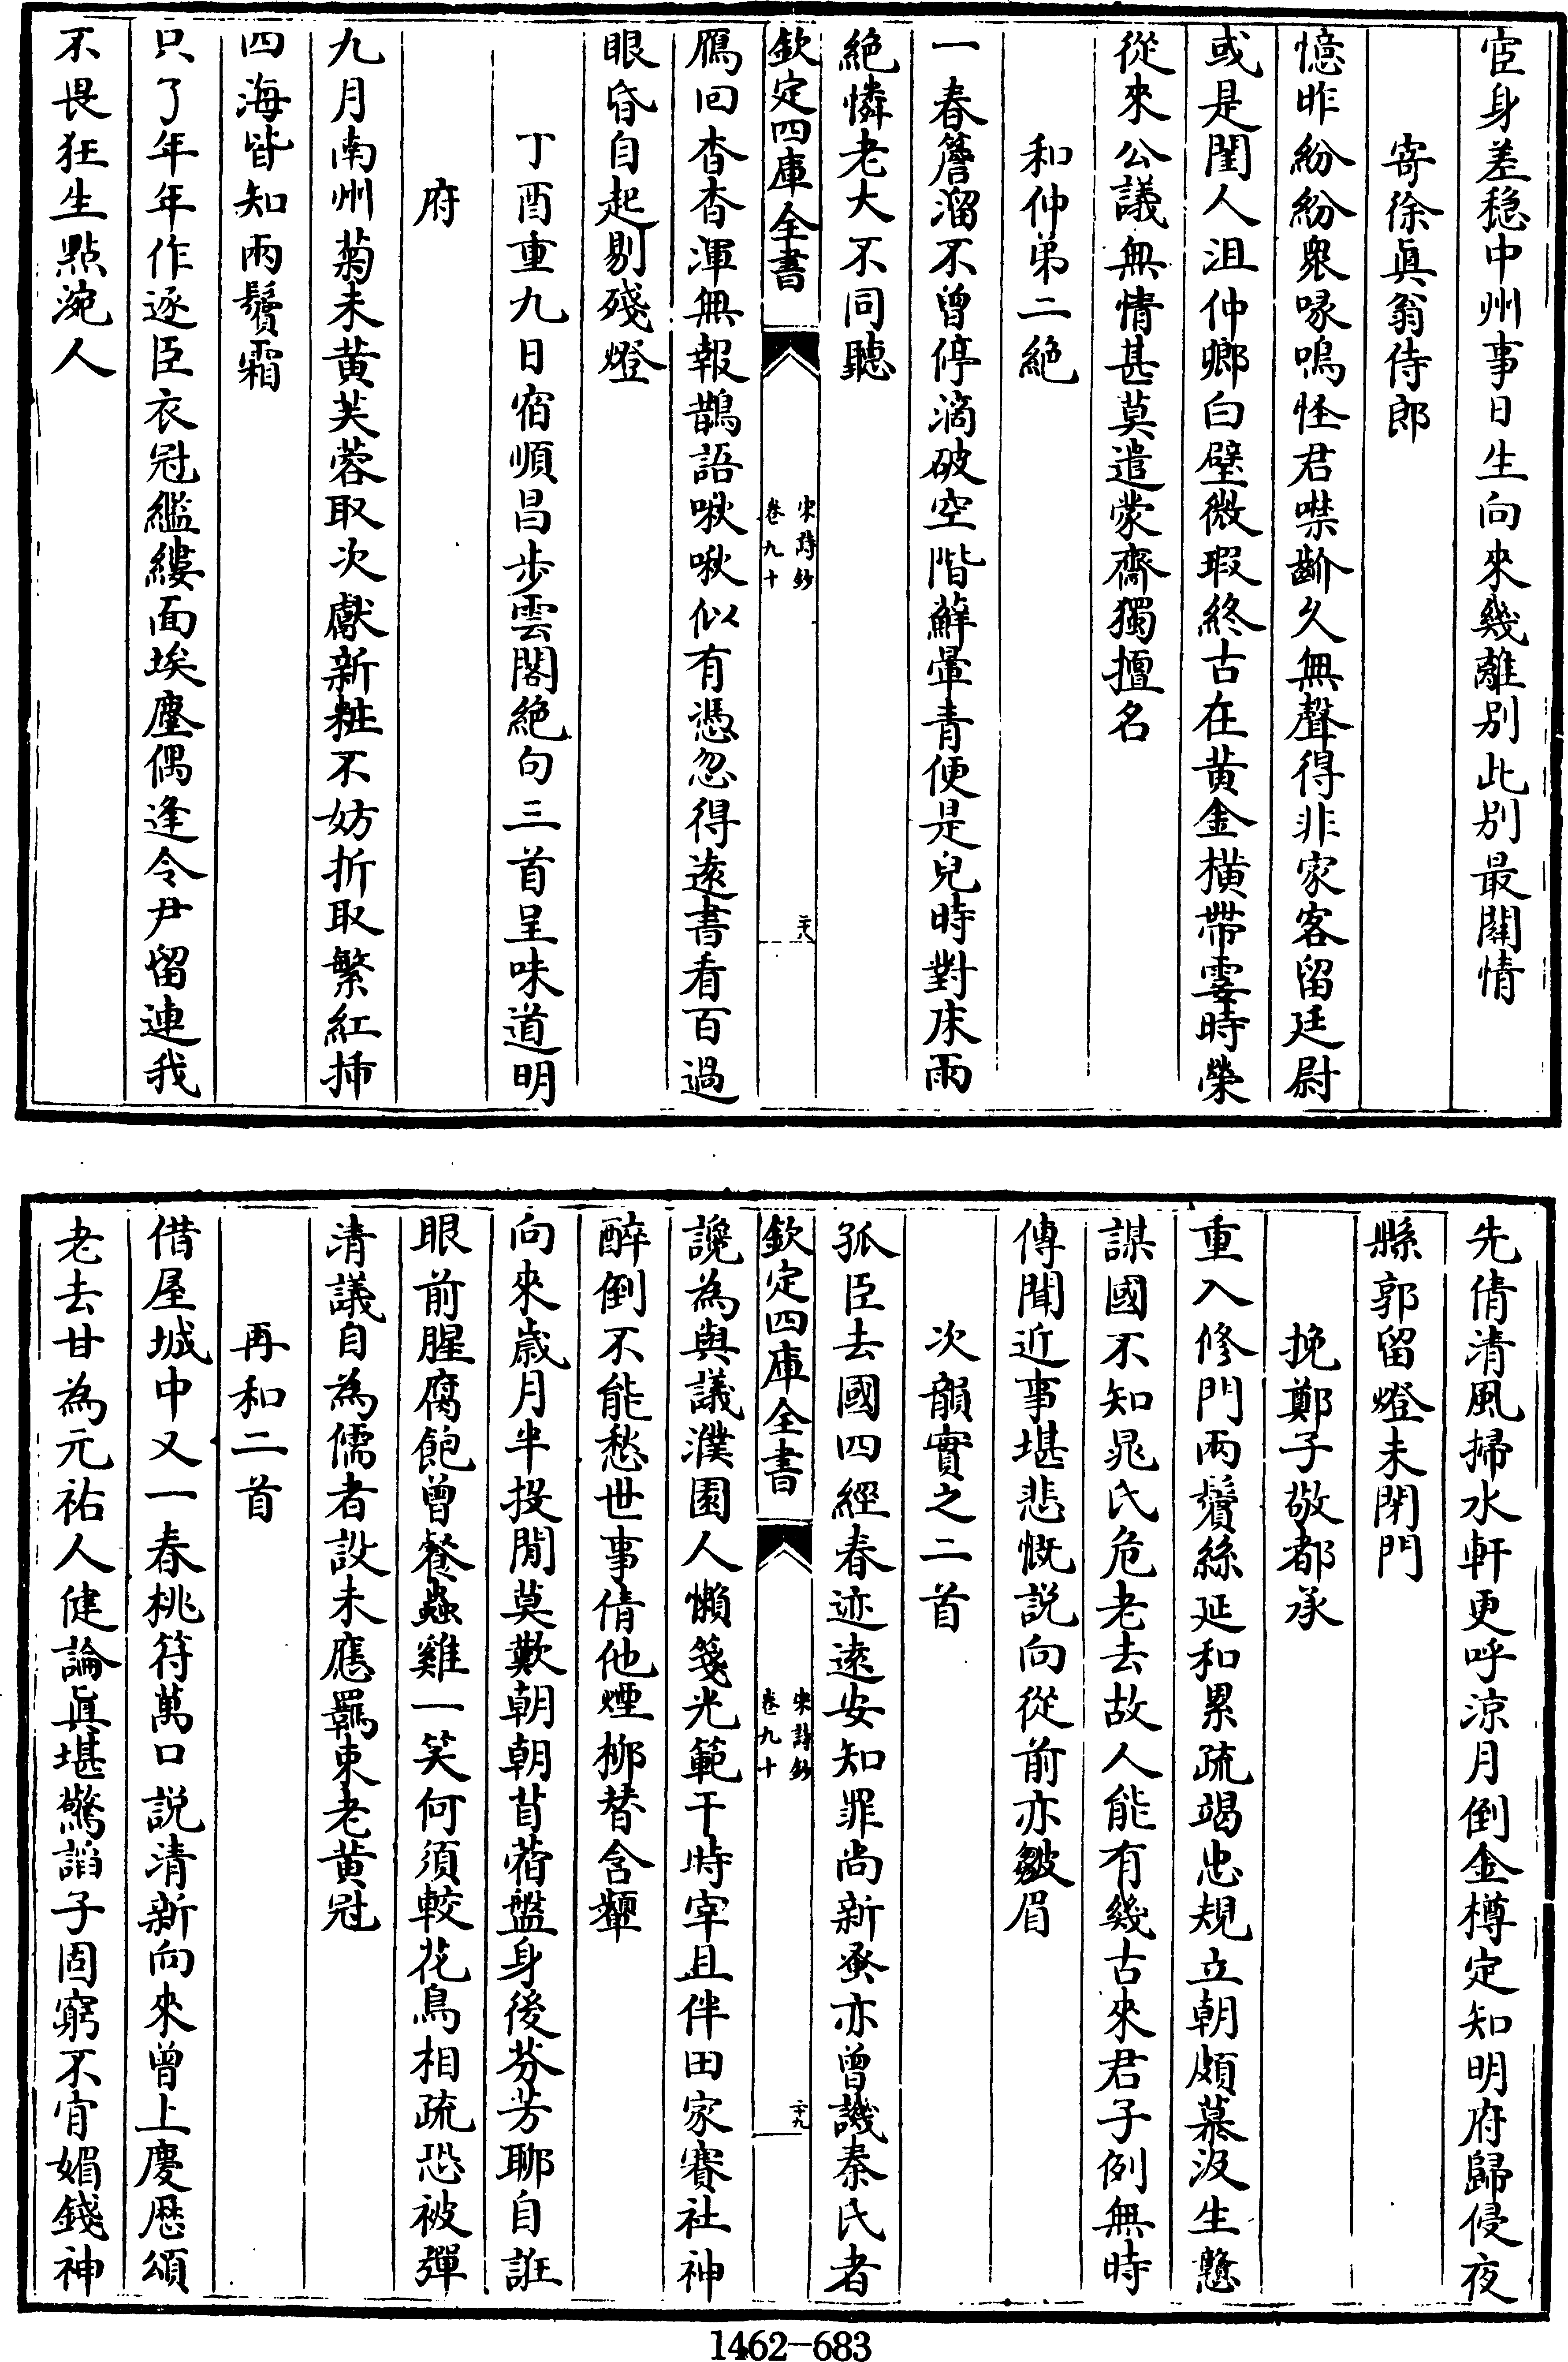 宦身差穏中州事日生向來幾離别此别最關情
寄徐眞翁侍郎
憶昨紛紛衆喙鳴怪君噤齘久無聲得非家客留廷尉
或是閨人沮仲卿白璧微瑕終古在黄金横帶霎時榮
從來公議無情甚莫遣蒙齋獨擅名
和仲弟二絶
一春簷溜不曾停滴破空階蘚暈青便是兒時對床雨
絶憐老大不同聽
欽定四庫全書
宋詩鈔
卷九十
二十八
鴈回杳杳渾無報鵲語啾啾似有憑忽得逺書看百過
眼昏自起剔殘燈
丁酉重九日宿順昌步雲閣絶句三首呈味道明
府
九月南州菊未黄芙蓉取次獻新粧不妨折取繁紅揷
四海皆知兩鬢霜
只了年年作逐臣衣冠繿縷面埃塵偶逢令尹留連我
不畏狂生㸃涴人
先倩清風掃水軒更呼涼月倒金樽定知明府歸侵夜
縣郭留燈未閉門
挽鄭子敬都承
重入修門兩鬢絲延和累疏竭忠規立朝頗慕汲生戇
謀國不知晁氏危老去故人能有幾古來君子例無時
傳聞近事堪悲慨説向從前亦皺眉
次韻實之二首
孤臣去國四經春迹逺安知罪尚新蚤亦曾譏秦氏者
讒為與議濮園人懶箋光範干時宰且伴田家賽社神
醉倒不能愁世事倩他煙柳替含顰
欽定四庫全書
宋詩鈔
卷九十
二十九
向來歳月半投閒莫歎朝朝苜蓿盤身後芬芳聊自誑
眼前腥腐飽曾餐蟲雞一笑何須較花鳥相疏恐被彈
清議自為儒者設未應羈束老黄冠
再和二首
借屋城中又一春桃符萬口説清新向來曾上慶厯頌
老去甘為元祐人健論眞堪驚謟子固窮不肯媚錢神
1462-683